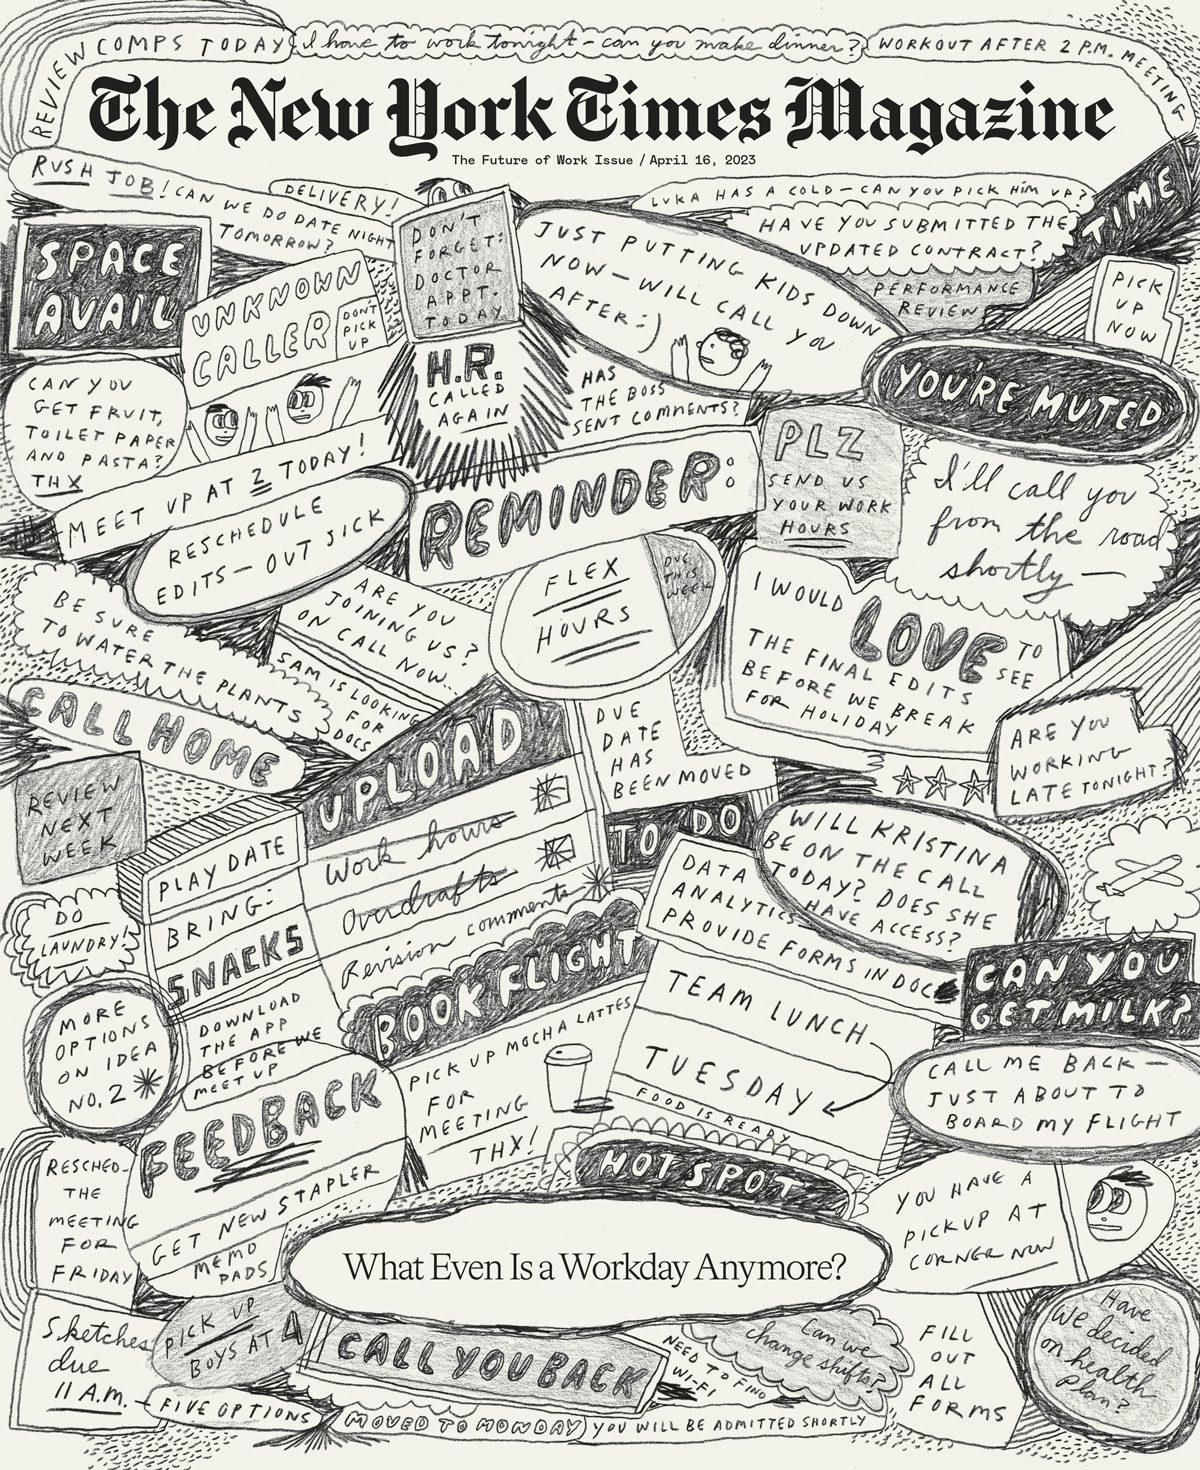 REVIEW COMPS TODAY
I have to work tonight - can you make dinner?
WORKOUT AFTER 2 P.M. MEETING
The New York Times Magazine
The Future of Work Issue / April 16, 2023
RUSH JOB!
CAN WE DO DATE NIGHT
TOMORROW?
DELIVERY!
DON'T
FORGET:
DOCTOR
APPT.
TODAY
LUKA HAS A COLD — CAN YOU PICK HIM UP?
HAVE YOU SUBMITTED THE
UPDATED CONTRACT?
TIME
SPACE
AVAIL
UNKNOWN
CALLER
DON'T
PICK
UP
JUST PUTTING KIDS DOWN
NOW — WILL CALL YOU
AFTER :)
PERFORMANCE
REVIEW
PICK
UP
NOW
H.R.
CALLED
AGAIN
HAS
THE BOSS
SENT COMMENTS?
YOU'RE MUTED
CAN YOU
GET FRUIT,
TOILET PAPER
AND PASTA?
THX
MEET UP AT 2 TODAY!
RESCHEDULE
EDITS — OUT SICK
REMINDER:
PLZ
SEND US
YOUR WORK
HOURS
I'll call you
from the road
shortly —
FLEX
HOURS
DUE
THIS
WEEK
I WOULD LOVE TO SEE
THE FINAL EDITS
BEFORE WE BREAK
FOR HOLIDAY
BE SURE
TO WATER THE PLANTS
ARE YOU
JOINING US?
ON CALL NOW..
SAM IS LOOKING
FOR
DOCS
CALL HOME
UPLOAD
Work hours
Overdrafts
Revision comments
DUE
DATE
HAS
BEEN MOVED
ARE YOU
WORKING
LATE TONIGHT?
REVIEW
NEXT
WEEK
PLAY DATE
BRING:
SNACKS
TO DO
DATA
ANALYTICS
PROVIDE FORMS IN DOC
WILL KRISTINA
BE ON THE CALL
TODAY? DOES SHE
HAVE ACCESS?
DO
LAUNDRY!
BOOK FLIGHT
CAN YOU
GET MILK?
MORE
OPTIONS
ON IDEA
NO. 2
DOWNLOAD
THE APP
BEFORE WE
MEET UP
PICK UP MOCHA LATTES
FOR
MEETING
THX!
TEAM LUNCH
TUESDAY
FOOD IS READY
CALL ME BACK —
JUST ABOUT TO
BOARD MY FLIGHT
FEEDBACK
GET NEW STAPLER
MEMO
PADS
HOT SPOT
RESCHED-
THE
MEETING
FOR
FRIDAY
YOU HAVE A
PICKUP AT
CORNER NOW
What Even Is a Workday Anymore?
Sketches
due
11 A.M.
PICK UP
BOYS AT 4
FIVE OPTIONS
CALL YOU BACK
NEED TO FIND
WI-FI
Can we
change shifts?
FILL
OUT
ALL
FORMS
Have
we decided
on health
plan?
MOVED TO MONDAY
YOU WILL BE ADMITTED SHORTLY